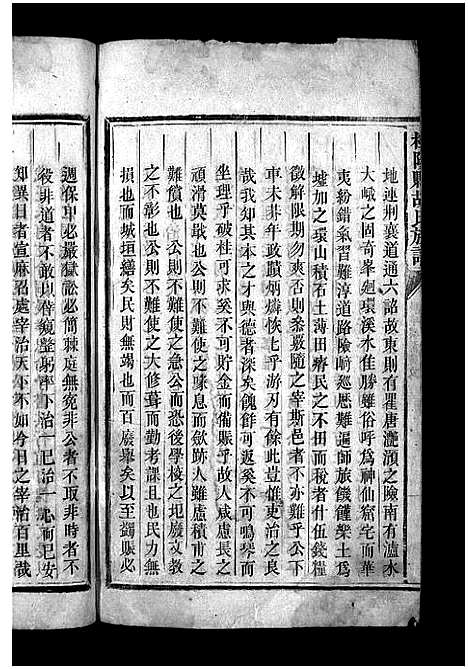 地連荆襄道通六詔故東則有瞿唐灔澦之險南有瀘水
大峨之固奇峯廻環溪水佳勝雖俗呼爲神仙窟宅而華
夷紛錯氣習難淳道路險峙經歷難遍師旅饑饉樂土爲
墟加之環山積石土薄田瘠民之不田而稅者什伍錢糧
徵解限期分毫莫爽否則叅罰隨之宰斯邑者難乎公下
車未非年政蹟炳燐恢七乎游刃有餘此豈惟吏治之良
哉我知其本之才與德者深矣餽餘可返矣不可鳴琴而
坐理乎破柱可求矣不可貯金而備賑乎故人咸慮長之
頑滑莫戢也公則不難使之喙息而歛跡人雖慮積市之
難償也 公則不難使之急公而恐後學校之圯廢文教
之不彰也公則不難使之大修葺而勤考課且也民力無
損也而城垣繕矣民則無竭也而百廢舉矣以至蠲賑必
週保甲必嚴獄訟必簡棘庭無冤非公者不取非時者不
役非道者不敢以得窺盩躬卒卜治一已治一心而已安
知異日者宣麻沼處宰治天下不如今日之宰治百里哉